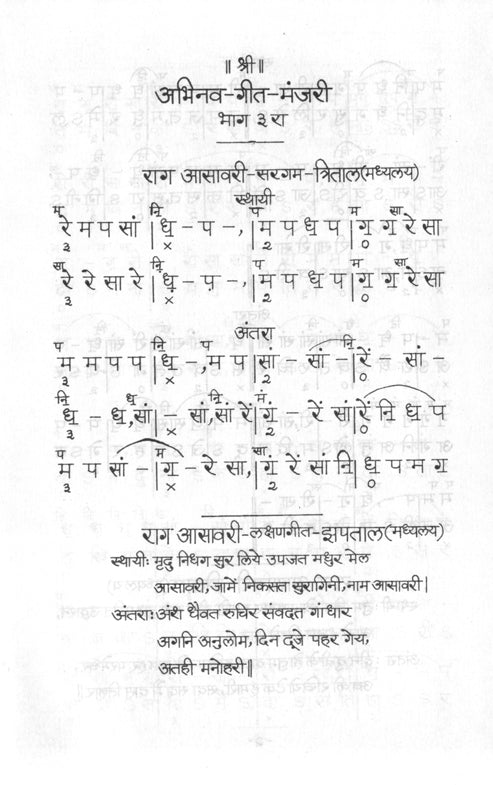 ॥ श्री॥
अभिनव-गीत-मंजरी
भाग ३ रा
राग आसावरी-सरगम-त्रिताल(मध्यलय)
स्थायी
म नि॒ प म सा
रे म प सां | ध॒ - प -, | म प ध॒ प | ग॒ ग॒ रे सा
३ × २ ०
सा नि॒ प म सा
रे रे सा रे | ध़॒ - प -, | म प ध॒ प | ग॒ ग॒ रे सा
३ × २ ०
अंतरा
प नि॒ प
म म प प | ध॒ -, म प | सां - सां - | रें - सां -
३ × २ ०
नि॒ ध॒ नि॒ मं
ध॒ - ध॒, सां | - सां, सा रें | गं॒ - रें सां | रें नि॒ ध॒ प
३ × २ ०
प म सां
म प सां - | ग॒ - रे सा, | गं॒ रें सां नि॒ | ध॒ प म ग॒
३ × २ ०
राग आसावरी-लक्षणगीत-झपताल(मध्यलय)
स्थायी: मृदु निधग सुर लिये उपजत मधुर मेल
आसावरी, जामें निकसत सुरागिनी, नाम आसावरी।
अंतरा: अंश धैवत रुचिर संवदत गांधार
अगनि अनुलोम, दिन दूजे पहर गेय,
अतही मनोहरी॥